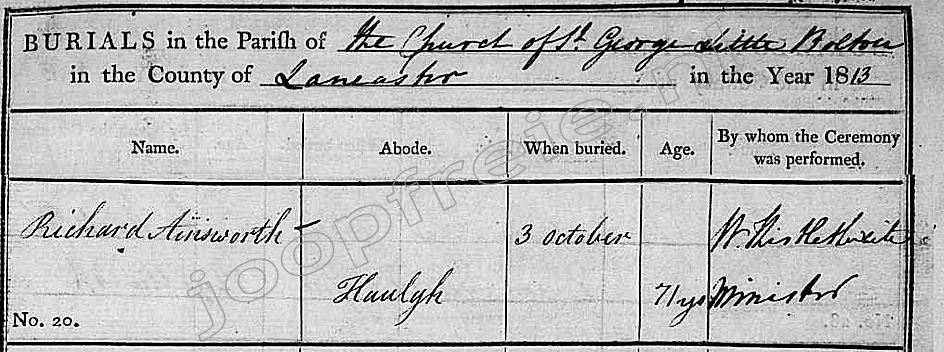 BURIALS in the Pariſh of the Church of St. George Little Bolton
in the County of Lancaster in the Year 1813
Name. Abode. When buried. Age. By whom the Ceremony was performed.
Richard Ainsworth 3 October W. Thistlethwaite
Haulgh 71 ys Minister
No. 20.
joopfreie.nl